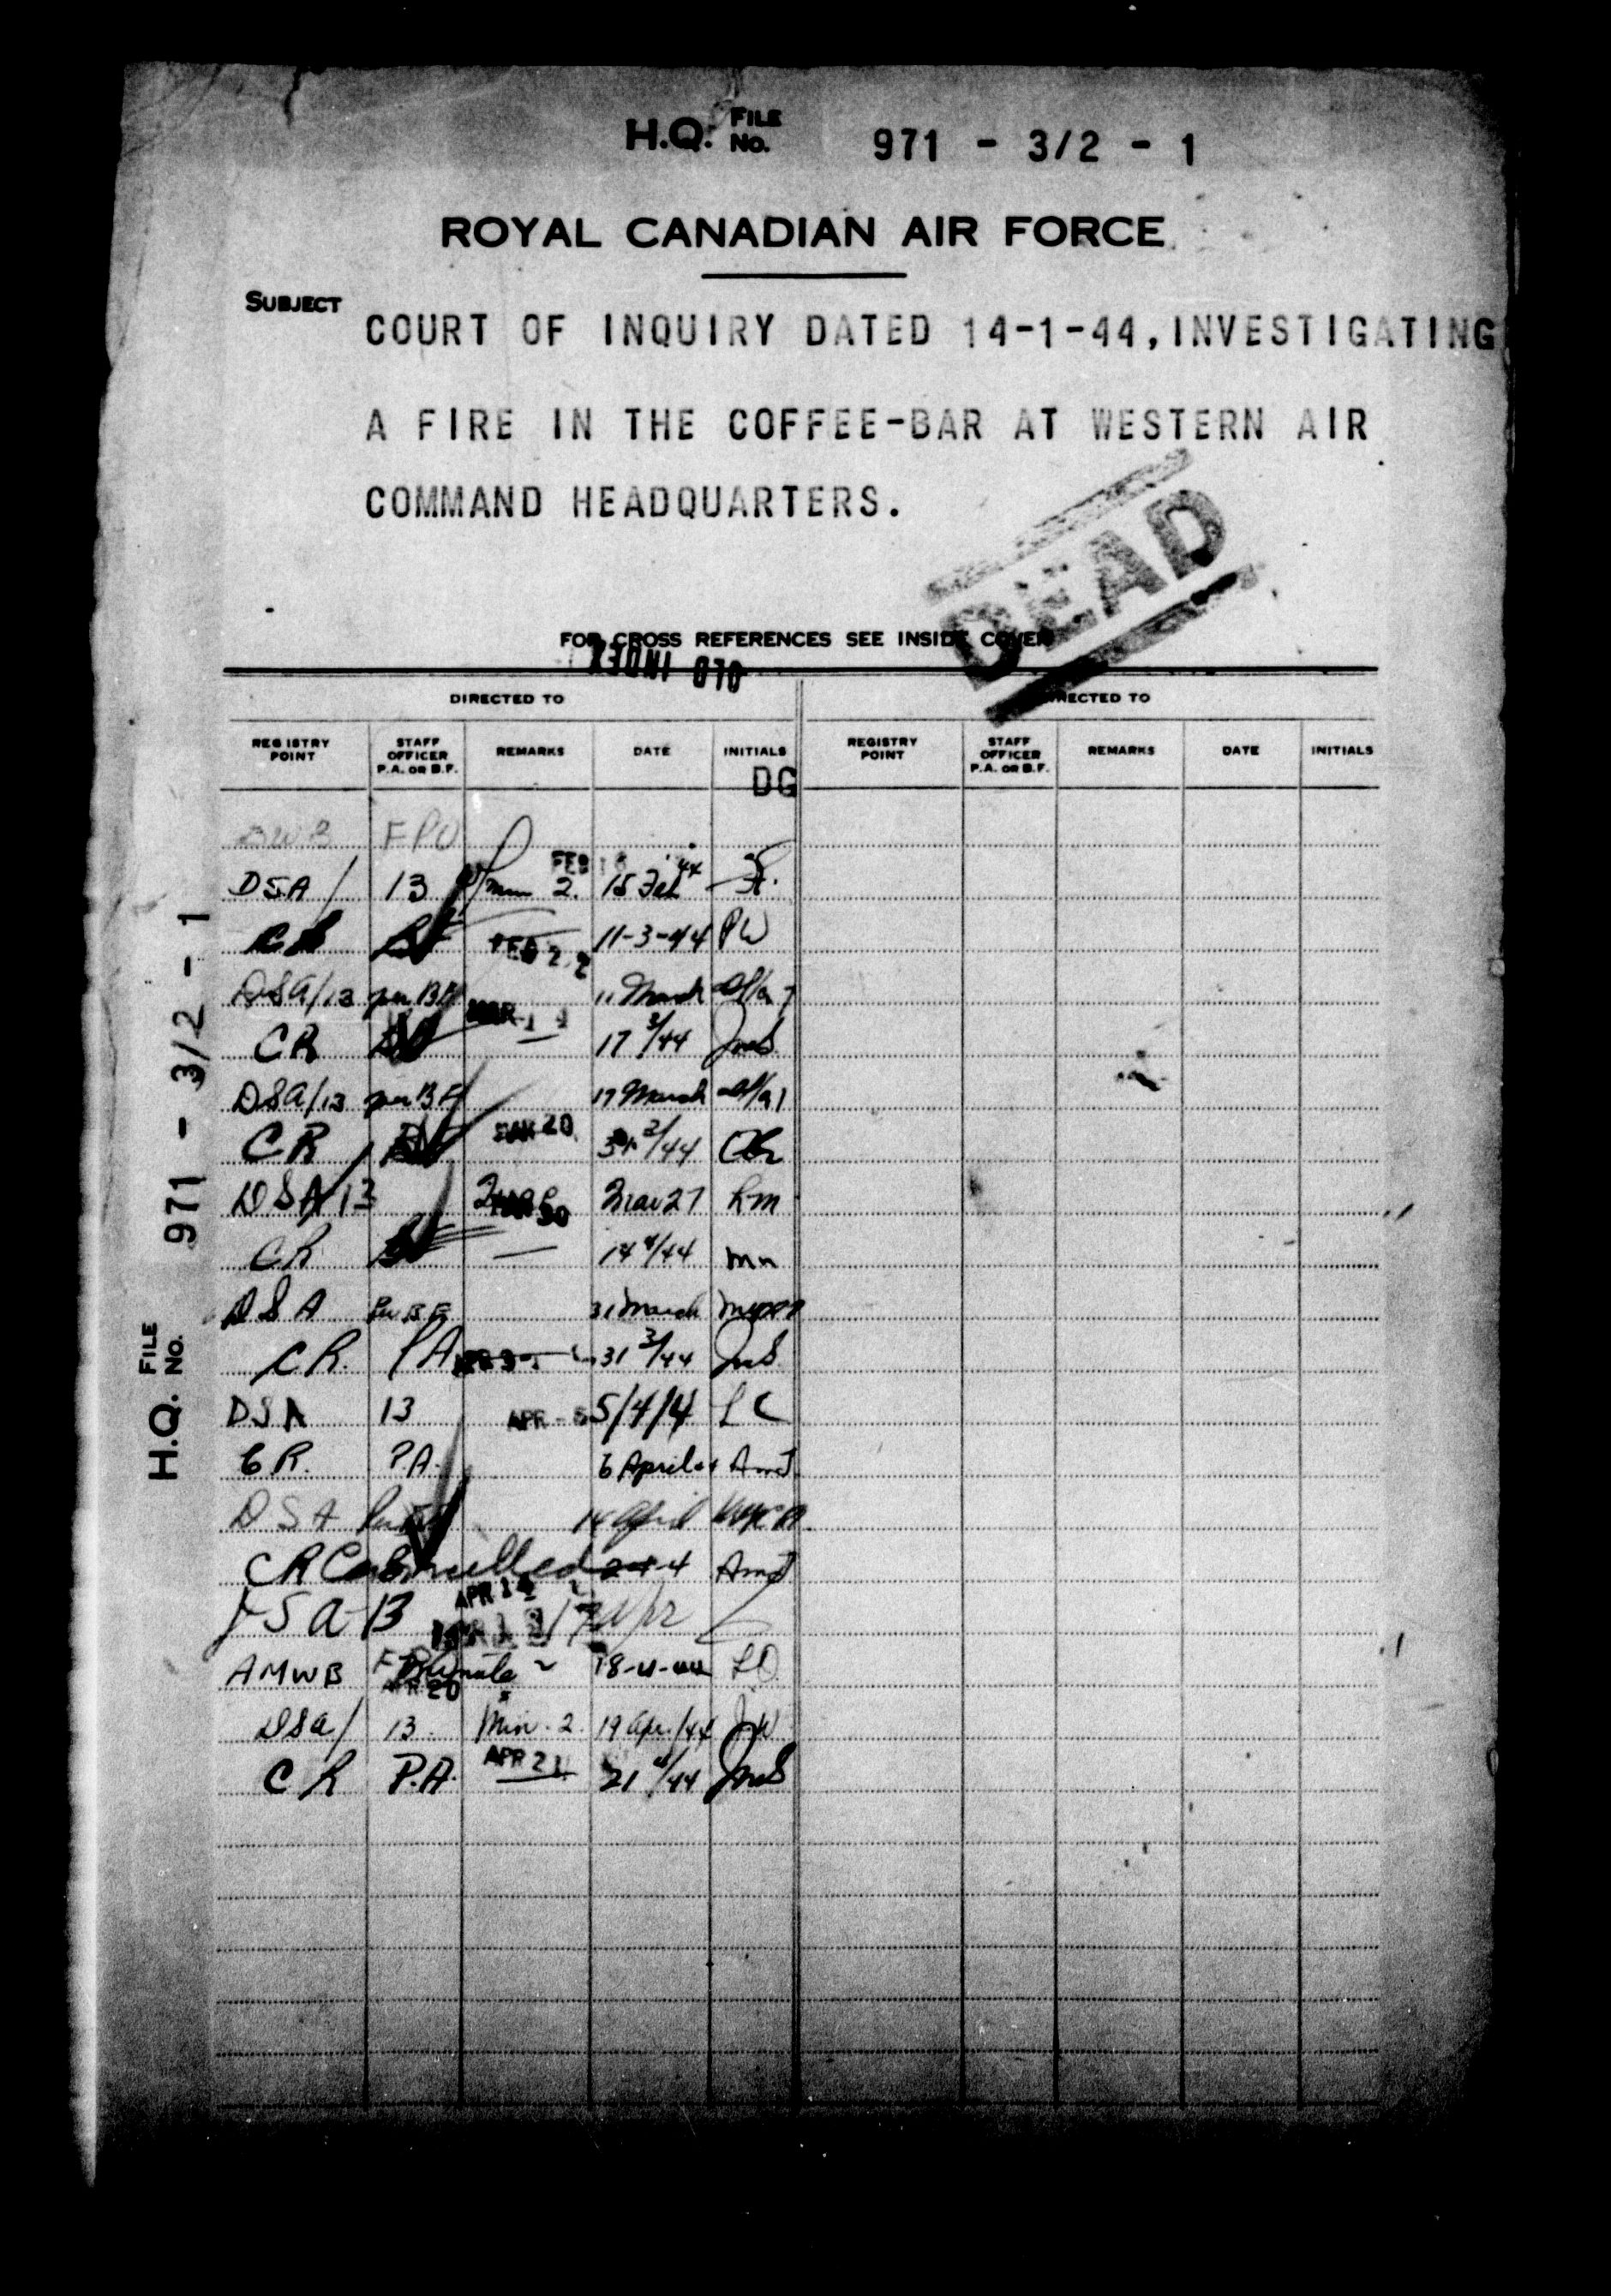 H.Q. FILE NO. 971 - 3/2 - 1
ROYAL CANADIAN AIR FORCE
SUBJECT
COURT OF INQUIRY DATED 14-1-44, INVESTIGATING
A FIRE IN THE COFFEE-BAR AT WESTERN AIR
COMMAND HEADQUARTERS.
DEAD
FOR CROSS REFERENCES SEE INSIDE COVER
OLD INDEX
DIRECTED TO DIRECTED TO
REGISTRY POINT STAFF OFFICER P.A. OR B.F. REMARKS DATE INITIALS REGISTRY POINT STAFF OFFICER P.A. OR B.F. REMARKS DATE INITIALS
DG
BWB FPO
FEB
DSA/ 13 2. 15 Feb 44
CR BF FEB 22 11-3-44 PW
DSA/13 per BF 11 March
CR BF MAR 14 17 3/44 JMS
DSA/13 per BF 17 March
CR BF MAR 20 /44
DSA/13 MAR 30 Mar 27 LM
CR BF 14 4/44
DSA Per BF 31 March
CR. PA 31 3/44 JMS
DSA 13 APR - 5 5/4/4 LC
CR. P.A. 6 April AMJ
DSA 14 April
CR Cancelled 4 AMJ
DSA-13 APR 14 17 Apr
AMWB Minute 2 18-4-44 LO
APR 20
DSA/ 13. Min. 2. 19 Apr./44 JW
CR P.A. APR 21 21 4/44 JMS
H.Q. FILE NO. 971 - 3/2 - 1